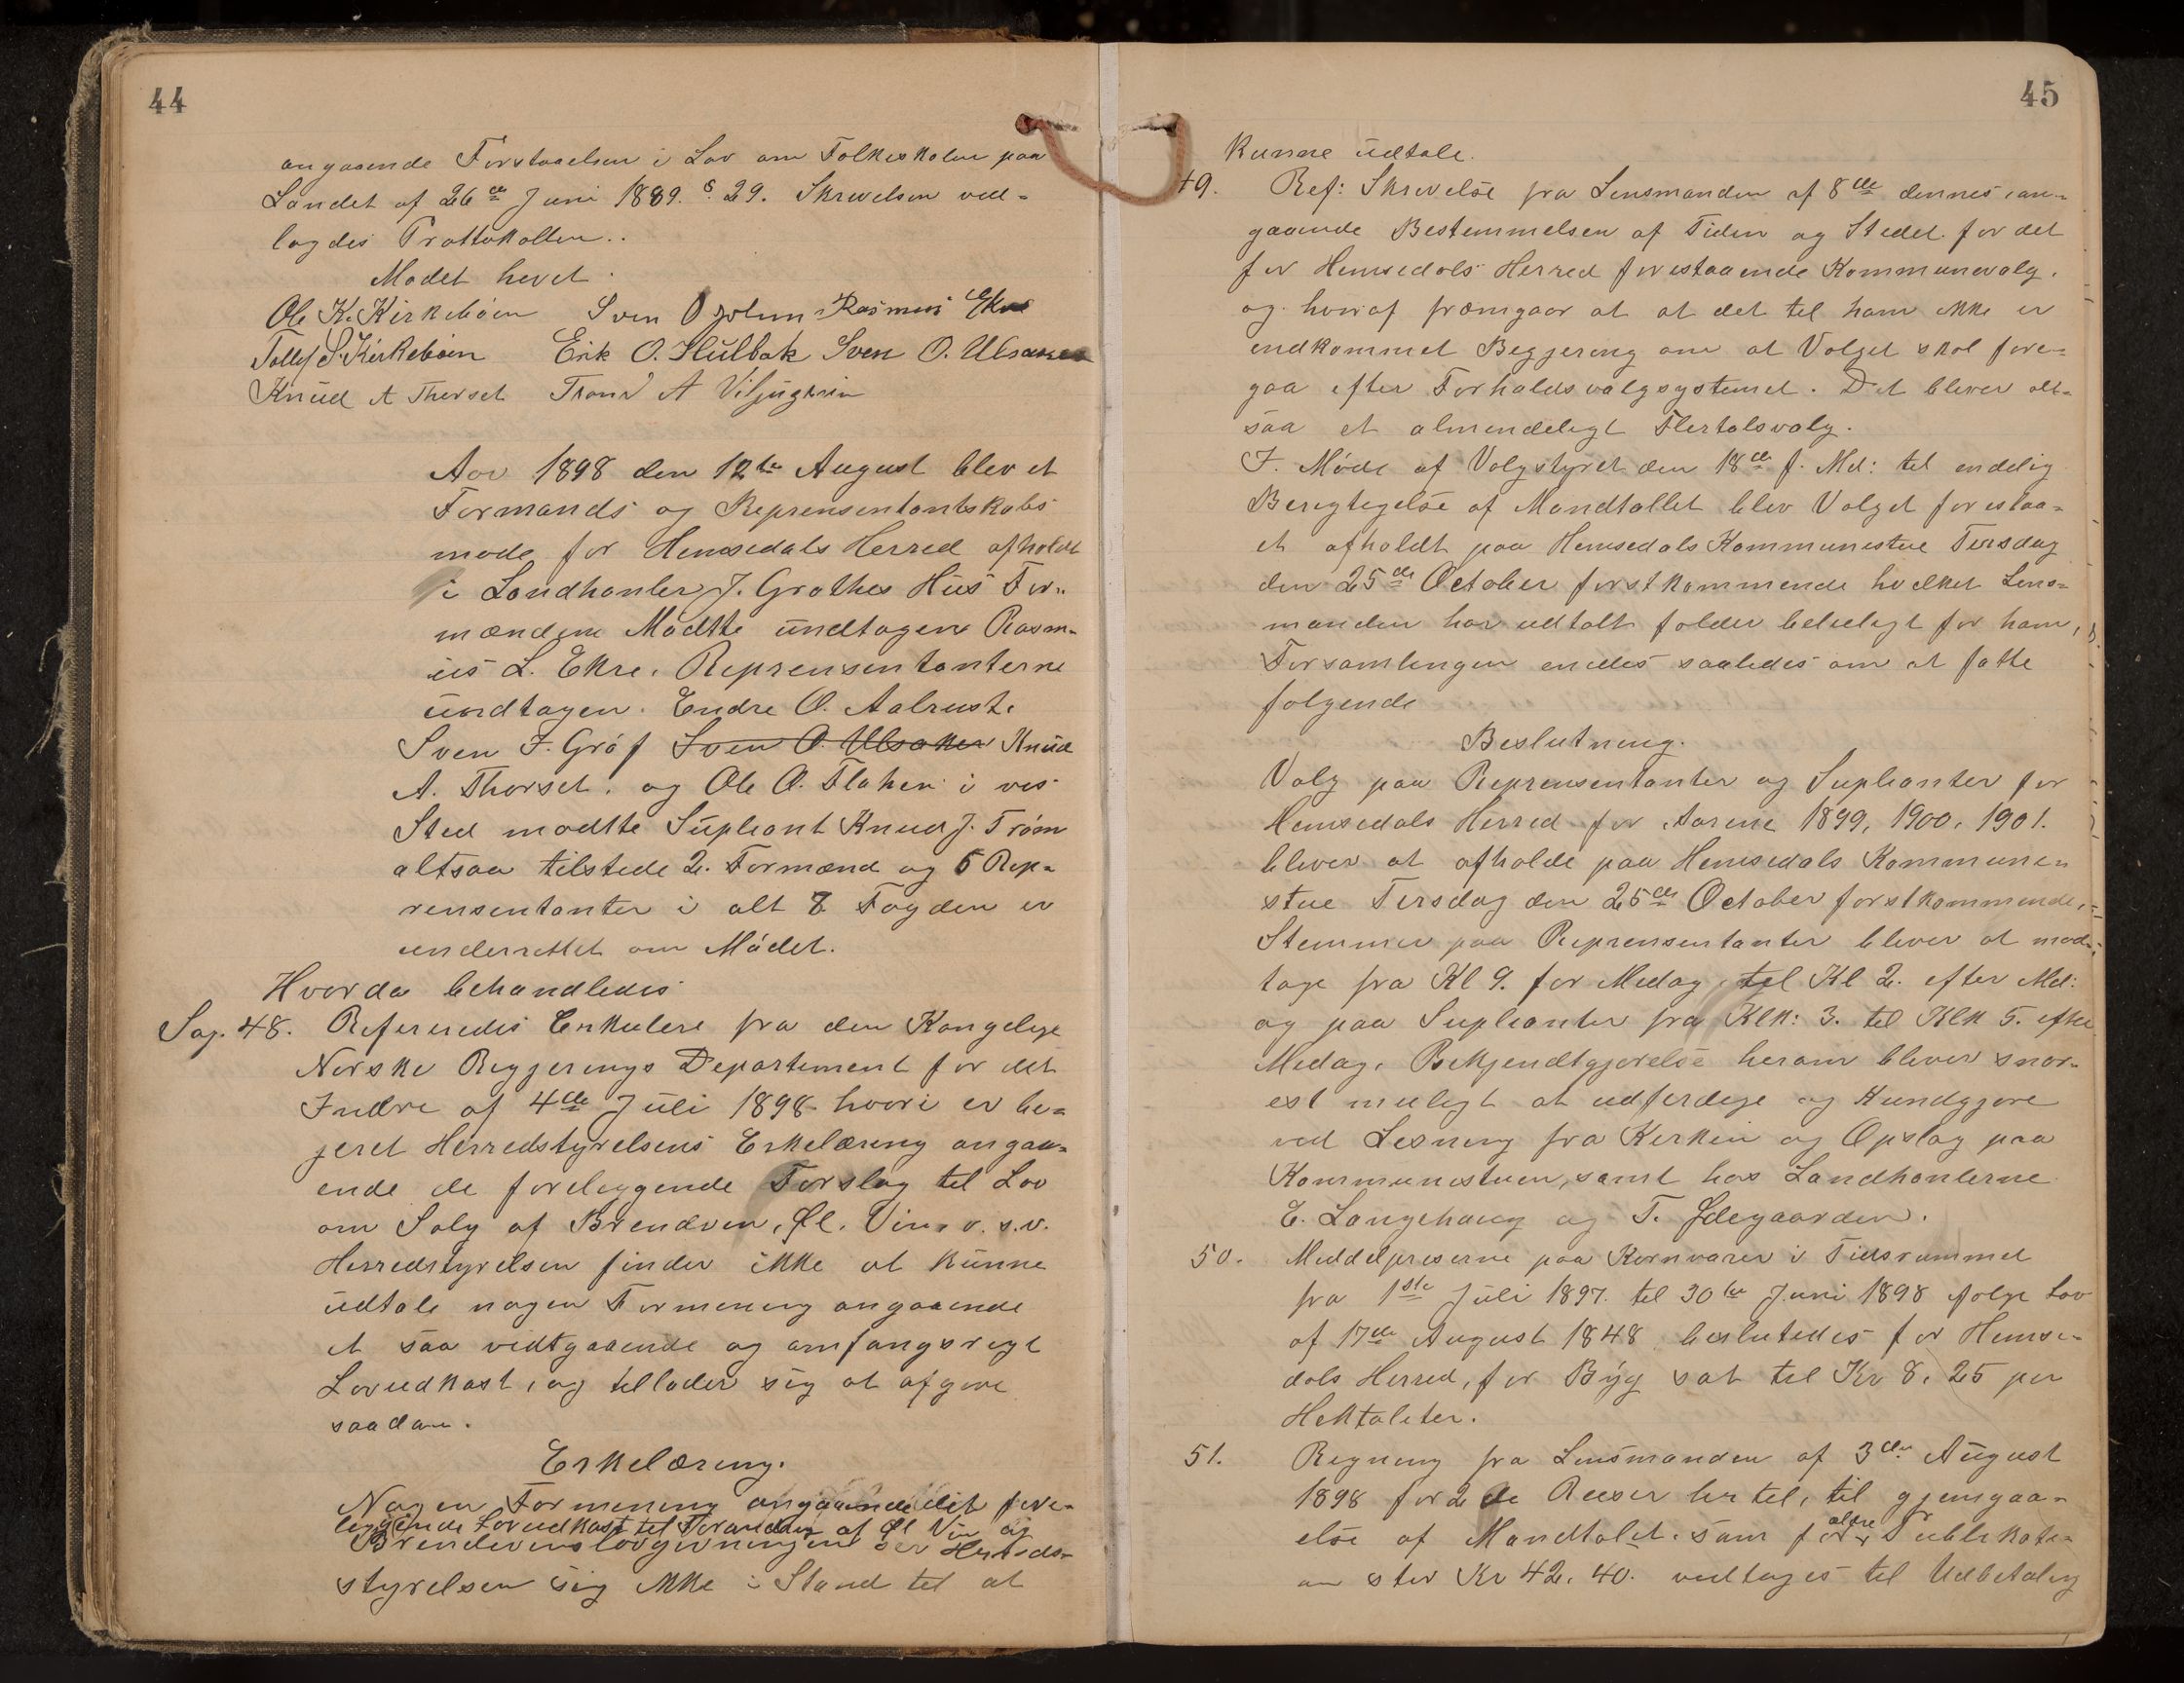 44
angaaende Forstaaelsen i Lov om Folkeskolen paa
Landet af 26de Juni 1889. § 29. Skrivelsen ved-
lagdes Prottokollen..
Mødet hevet.
Ole K. Kirkebøen Sven O Jolun Rasmus Ekre
Tollef S. Kirkebøen Erik O. Hulbak Sven O. Ulsaker
Knud A Thorset Trond A Viljugrein
Aar 1898 den 12te August blev et
Formands og Reprensentantskabs
møde for Hemsedals Herred afholdt
i Landhanler J. Grøthes Hus For-
mændene Mødtte undtagen Rasm-
us L. Ekre. Reprensentanterne
undtagen. Endre O. Aalrust.
Sven I. Grøf Sven O. Ulsaker Knud
A. Thorset. og Ole O. Flaten i ves
Sted mødtte Supleant Knud J. Trøim
altsaa tilstede 2. Formænd og 5 Rep-
rensentanter i alt 7 Fogden er
underrettet om Mødet.
Hvorda behandledes
Sag. 48. Refereredes Cirkulere fra den Kongelige
Norske Reggjerings Departement for det
Indre af 4de Juli 1898 hvori er be-
jeret Herredstyrelsens Erkelæring angaa-
ende de foreleggende Forslag til Lov
om Salg af Brendven, Øl. Vin. o. s.v.
Herredstyrelsen finder ikke at kunne
udtale nogen Formening angaaende
et saa vedtgaaende og omfangsregt
Lovudkast, og tellader sig at afgive
saadan.
Erkelæring.
Nogen Formening angaaende det fore-
leggende Lovudkast til Forandring af Øl Vin og
Brendevinslovgivningen ser Herreds-
styrelsen sig ikke i Stand til at
45
kunne udtale.
49. Ref: Skrivelse fra Lensmanden af 8de dennes, an-
gaaende Bestemmelsen af Tiden og Stedet for det
for Hemsedals Herred forestaaende Kommunevalg.
og hvoraf fræmgaar at at det til ham ikke er
indkommet Beggjering om at Valget skal fore-
gaa efter Forholdsvalgsystemet. Det blever alt-
saa et almendeligt Flertalsvalg.
I. Møde af Valgstyret den 18de f. Md: til endelig
Beregtegelse af Mandtallet blev Valget foreslaa-
et afholdt paa Hemsedals Kommunestue Tirsdag
den 25de October førstkommende hvelket Lens-
manden har udtalt falder beleeligt for ham,
Forsamlingen enedes saaledes om at fatte
følgende
Beslutning.
Valg paa Reprensentanter og Supleanter for
Hemsedals Herred for Aarene 1899, 1900, 1901.
blever at afholde paa Hemsedals Kommune-
stue Tirsdag den 25de October førstkommende.
Stemmer paa Reprensentanter blever at mod-
tage fra Kl 9. for Medag, til Kl 2. efter Md:
og paa Supleanter fra Klk: 3. til Klk 5. efter
Medag. Bekjendtgjørelse herom blever snar-
est meeligt at udferdige og Kundgjøre
ved Lesning fra Kerken og Opslag paa
Kommunestuen, samt hos Landhanlerne
E. Langehaug og T. Ødegaarden.
50. Meddelpreserne paa Kornvarer i Tidsrummet
fra 1ste Juli 1897. til 30te Juni 1898 følge Lov
af 17de August 1848 beslutedes for Hemse-
dals Herred, for Byg sat til Kr 8.25 per
Hektaleter.
51. Regning fra Lensmanden af 3de August
1898 for 2de Reeser her til, til gjemgaa-
else af Mandtalet. sam for aldre Publekate-
an stor Kr 42.40. vedtages til Udbetaling